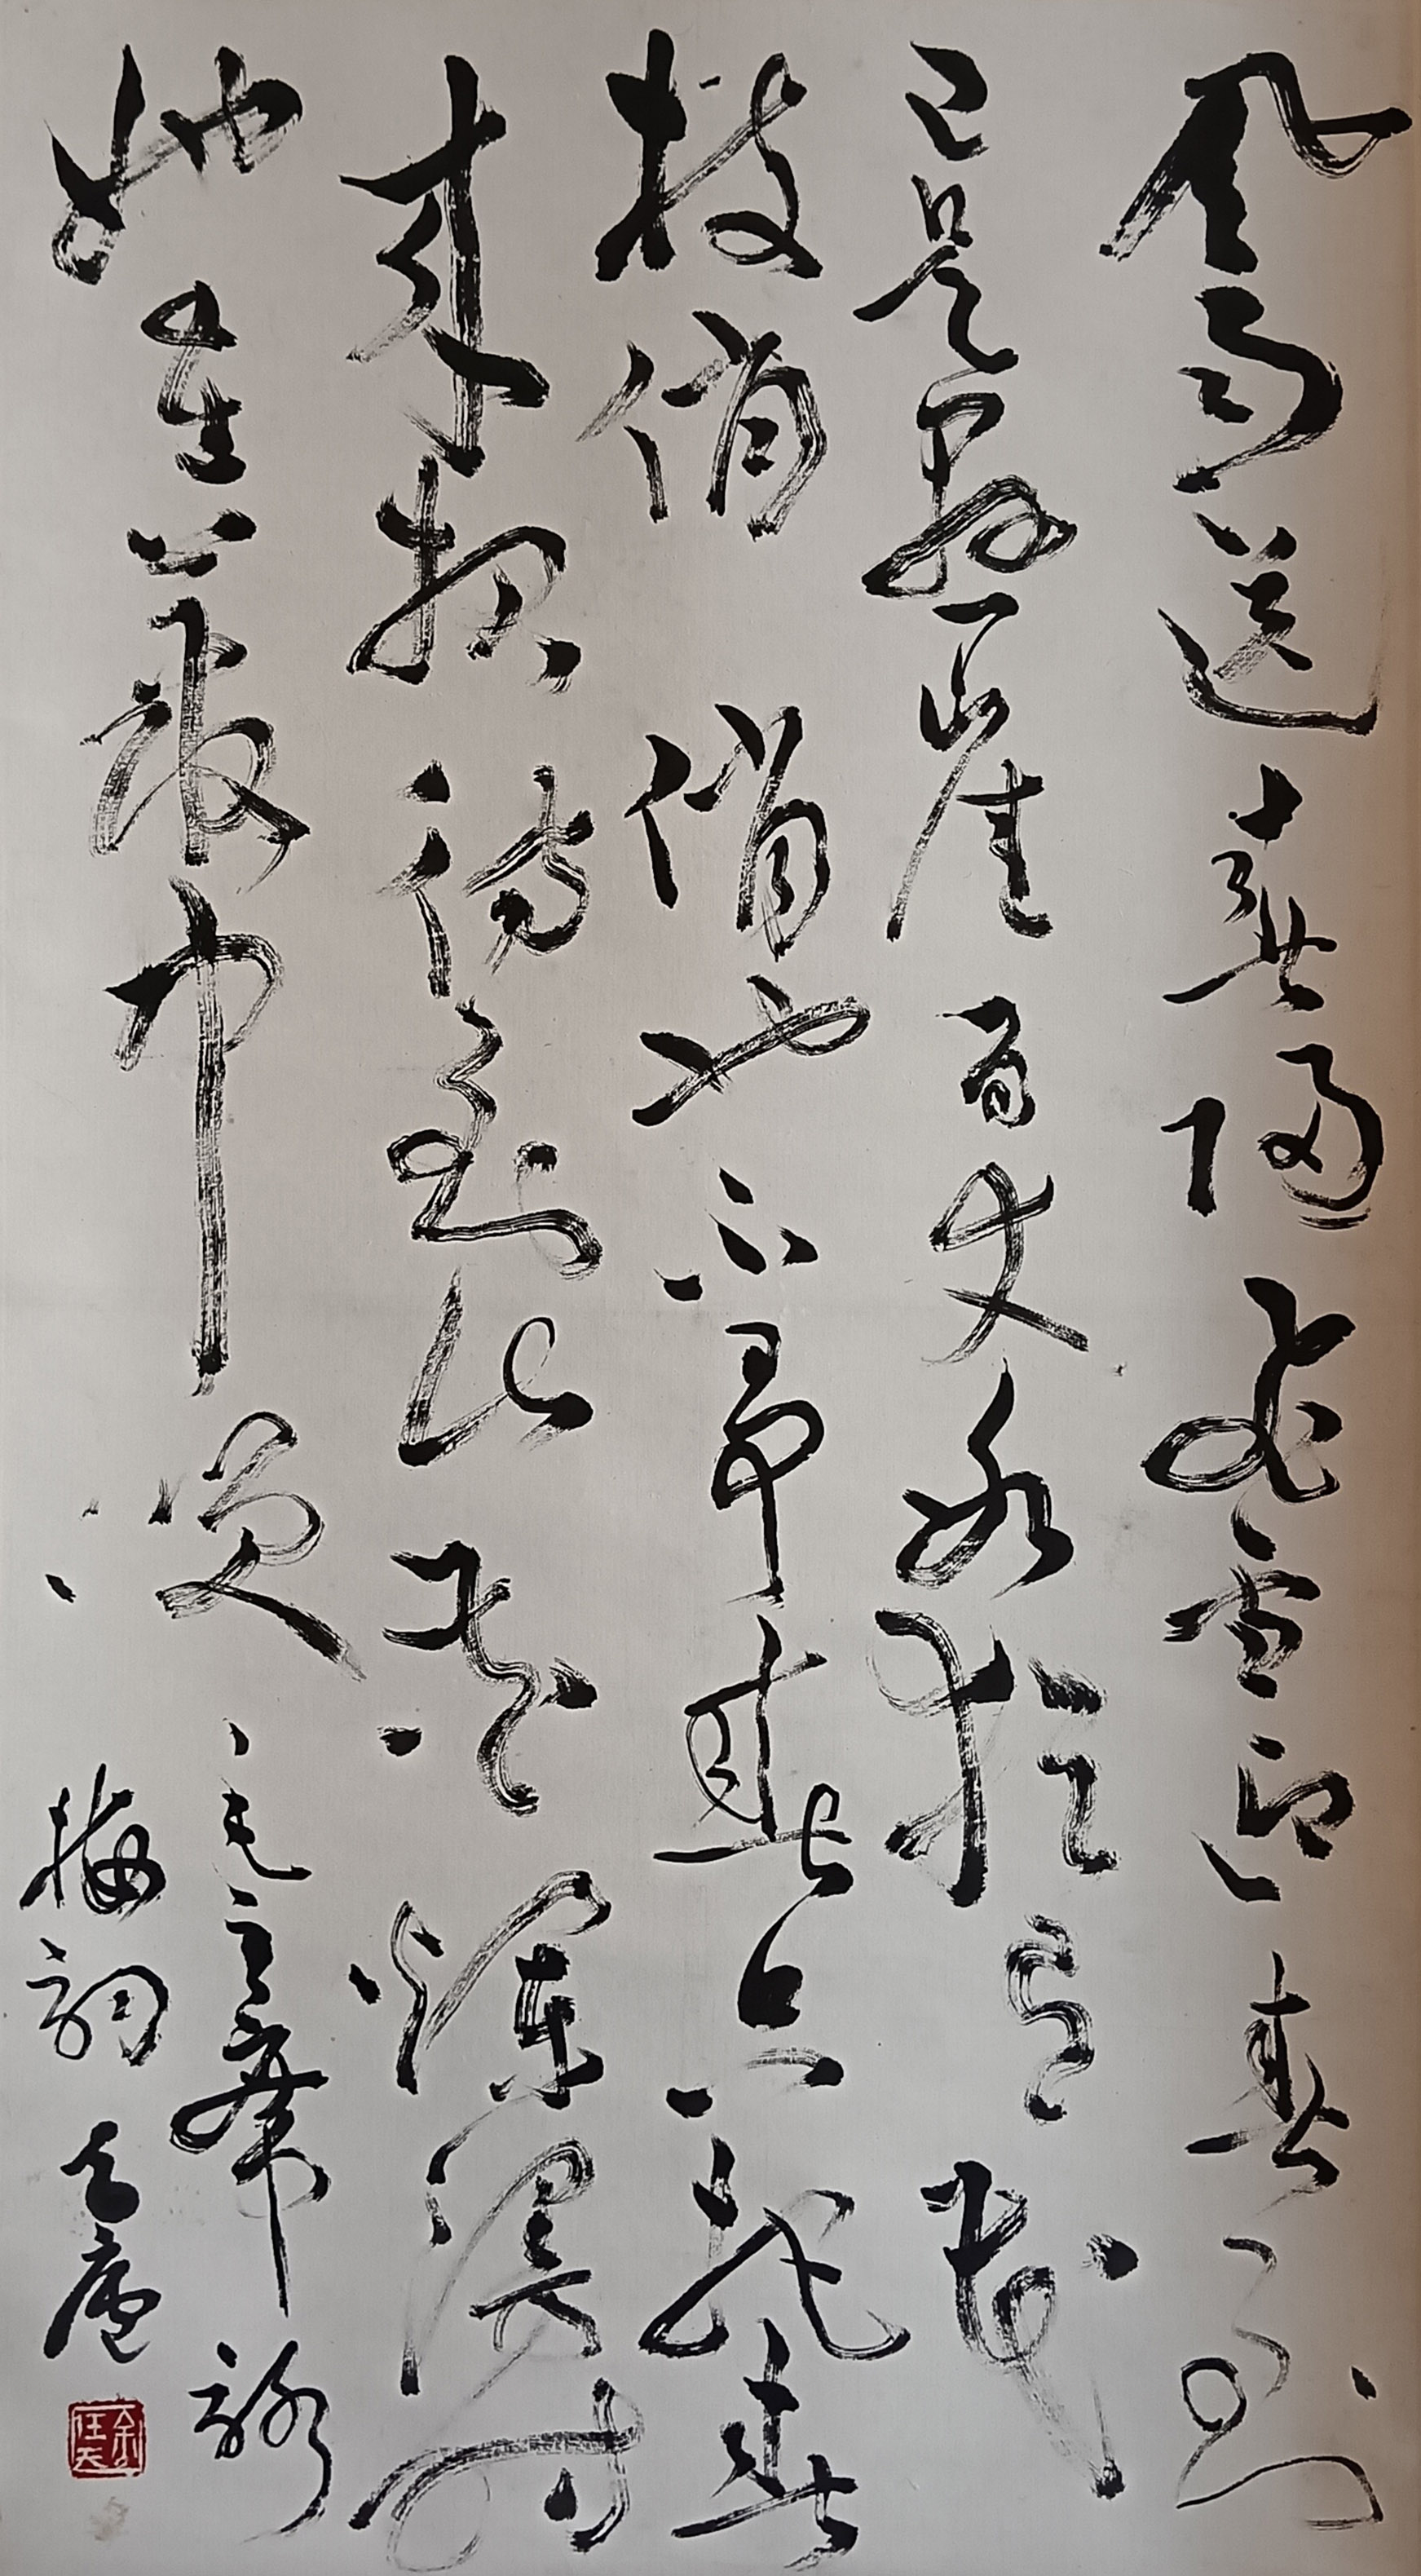 風雨送春歸飛雪迎春到
已是懸崖百丈冰猶有花
枝俏俏也不爭春只把春
來報待到山花爛漫時
她在叢中笑毛主席詠
梅詞天廬
余任天